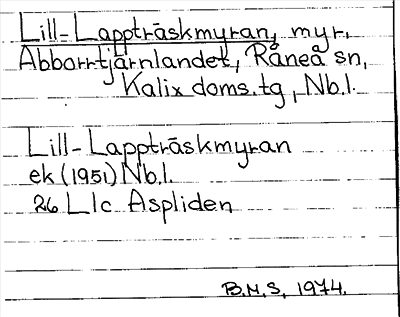 Lill-Lappträskmyran, myr,
Abborrtjärnlandet, Råneå sn,
Kalix doms.tg, Nb.l.
Lill-Lappträskmyran
ek (1951) Nb.l.
26 L1c Aspliden
B.M.S, 1974.